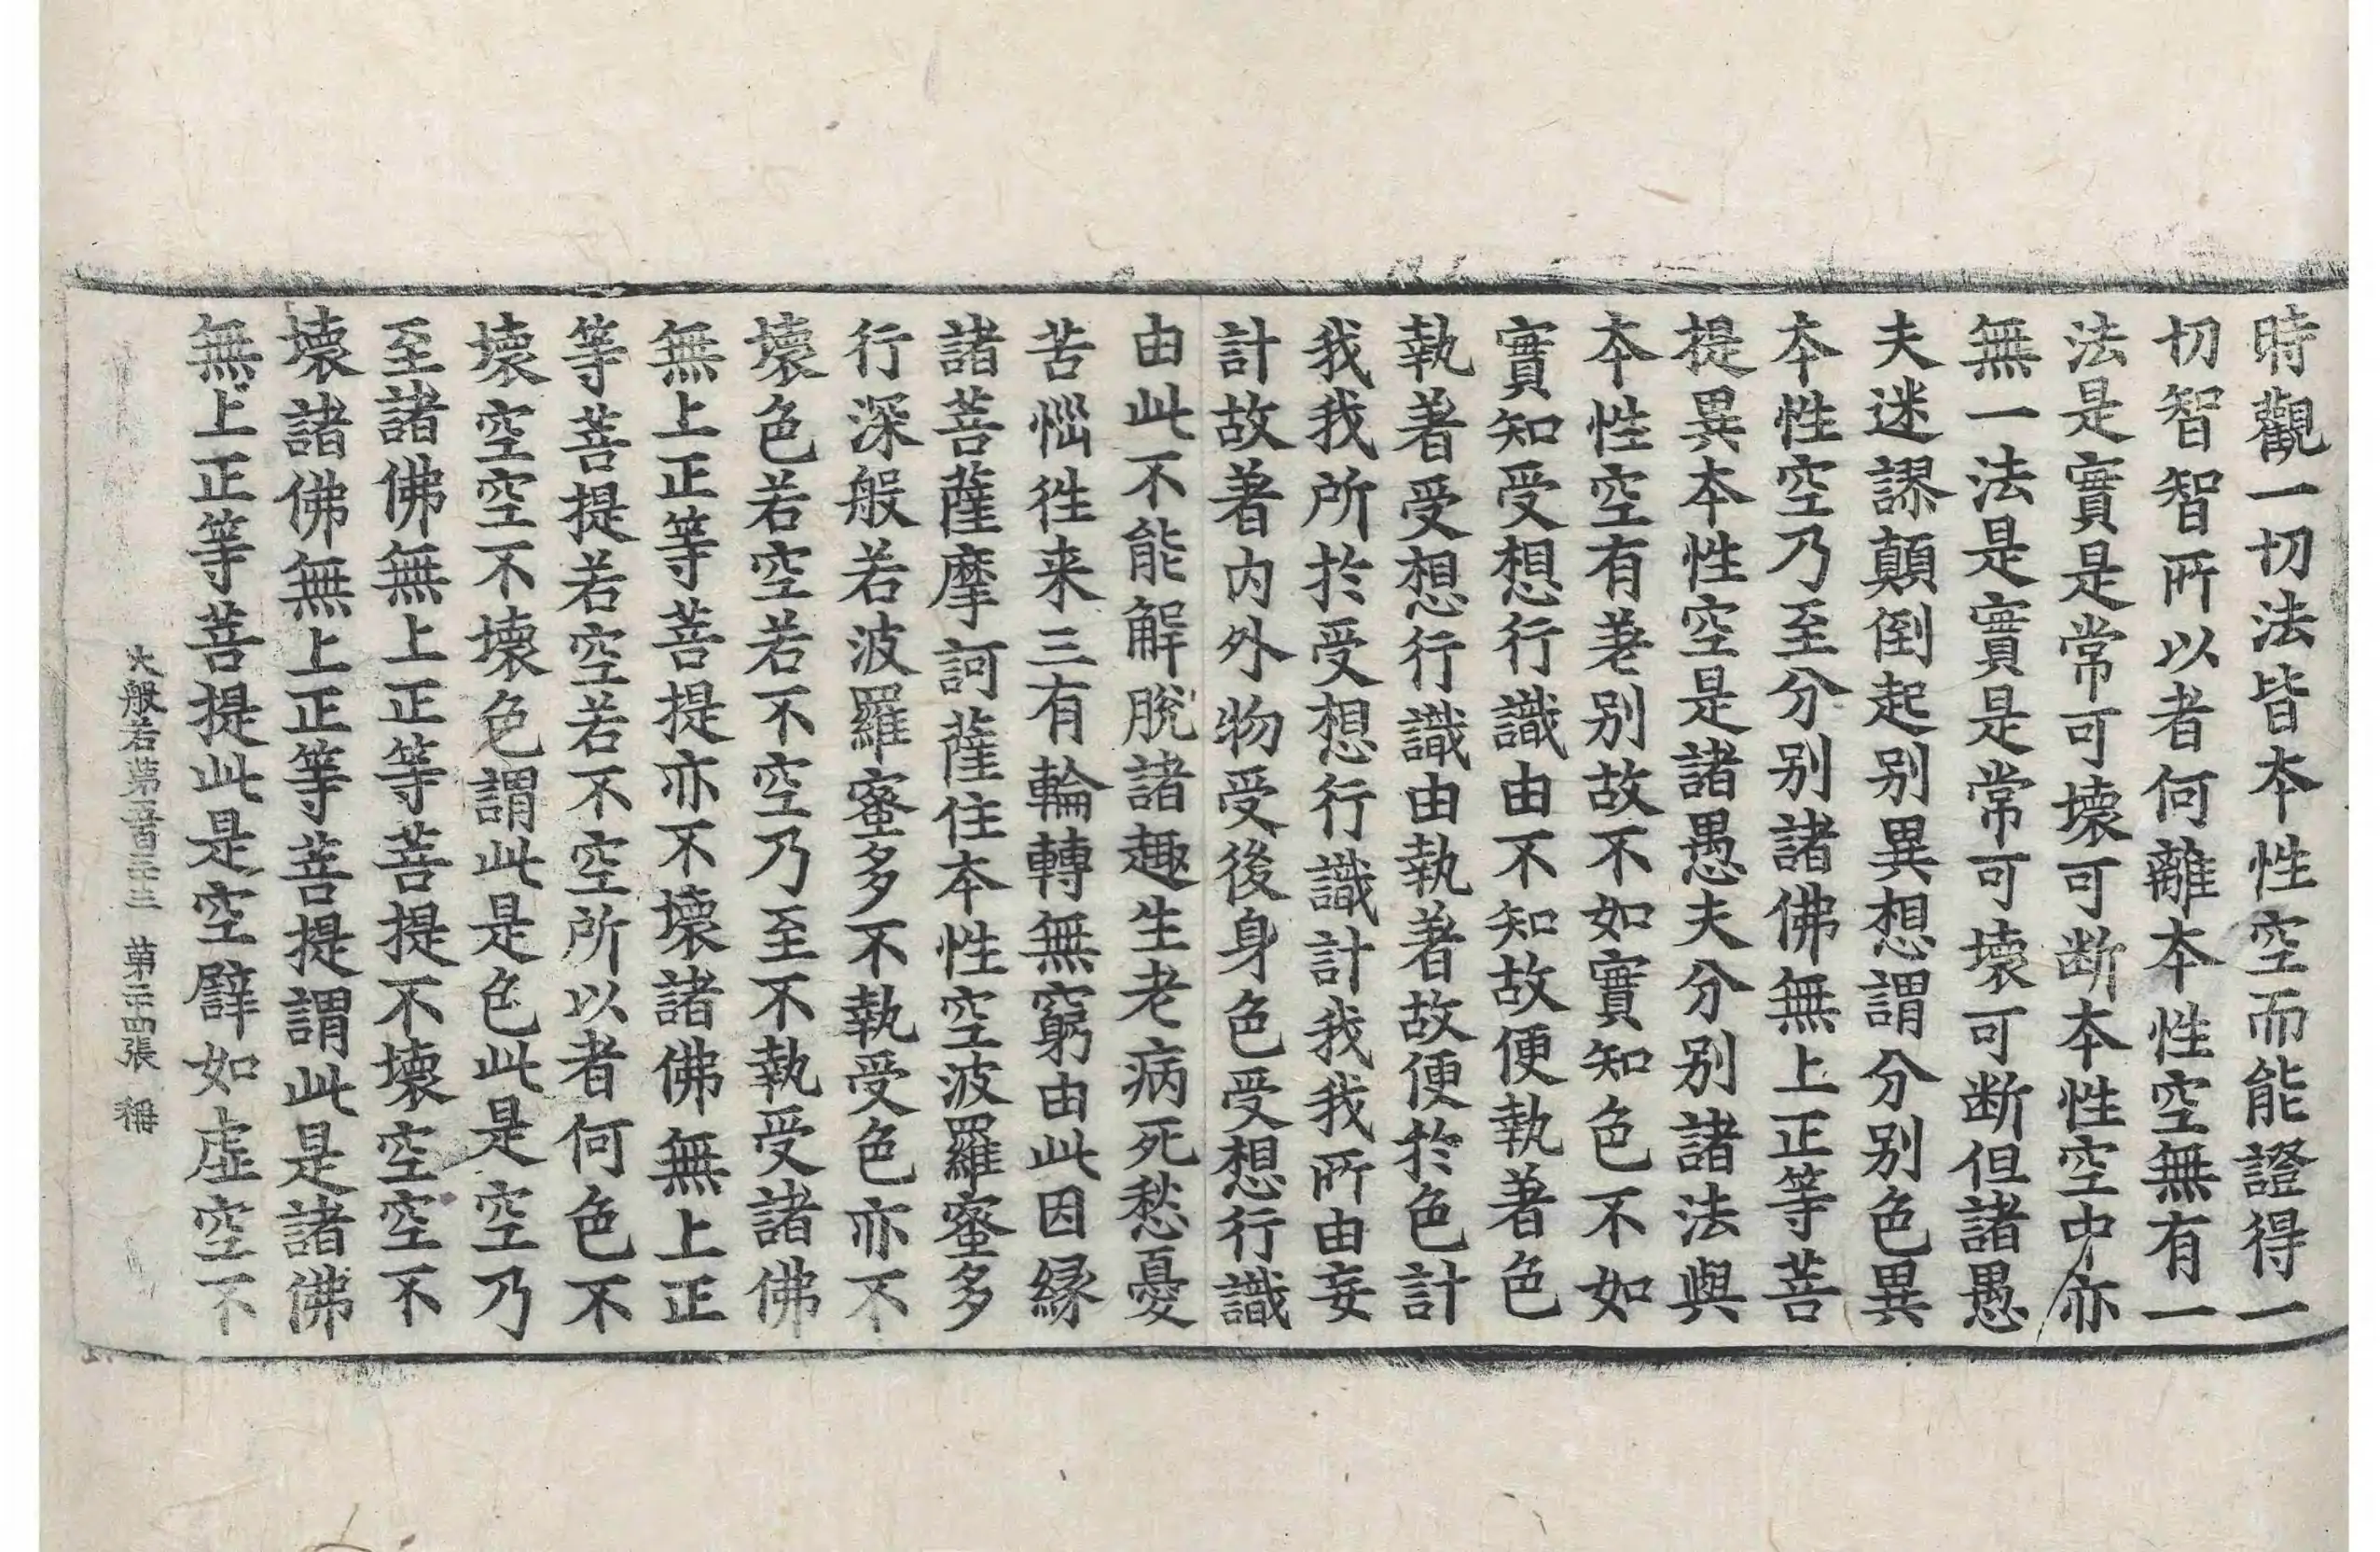 時觀一切法皆本性空而能證得一
切智智所以者何離本性空無有一
法是實是常可壞可斷本性空中亦
無一法是實是常可壞可斷但諸愚
夫迷謬顛倒起別異想謂分別色異
本性空乃至分別諸佛無上正等菩
提異本性空是諸愚夫分別諸法與
本性空有差別故不如實知色不如
實知受想行識由不知故便執著色
執著受想行識由執著故便於色計
我我所於受想行識計我我所由妄
計故著內外物受後身色受想行識
由此不能解脫諸趣生老病死愁憂
苦惱徃来三有輪轉無窮由此因緣
諸菩薩摩訶薩住本性空波羅蜜多
行深般若波羅蜜多不執受色亦不
壞色若空若不空乃至不執受諸佛
無上正等菩提亦不壞諸佛無上正
等菩提若空若不空所以者何色不
壞空空不壞色謂此是色此是空乃
至諸佛無上正等菩提不壞空空不
壞諸佛無上正等菩提謂此是諸佛
無上正等菩提此是空譬如虛空不
大般若第五百三十三 第二十四張 稱